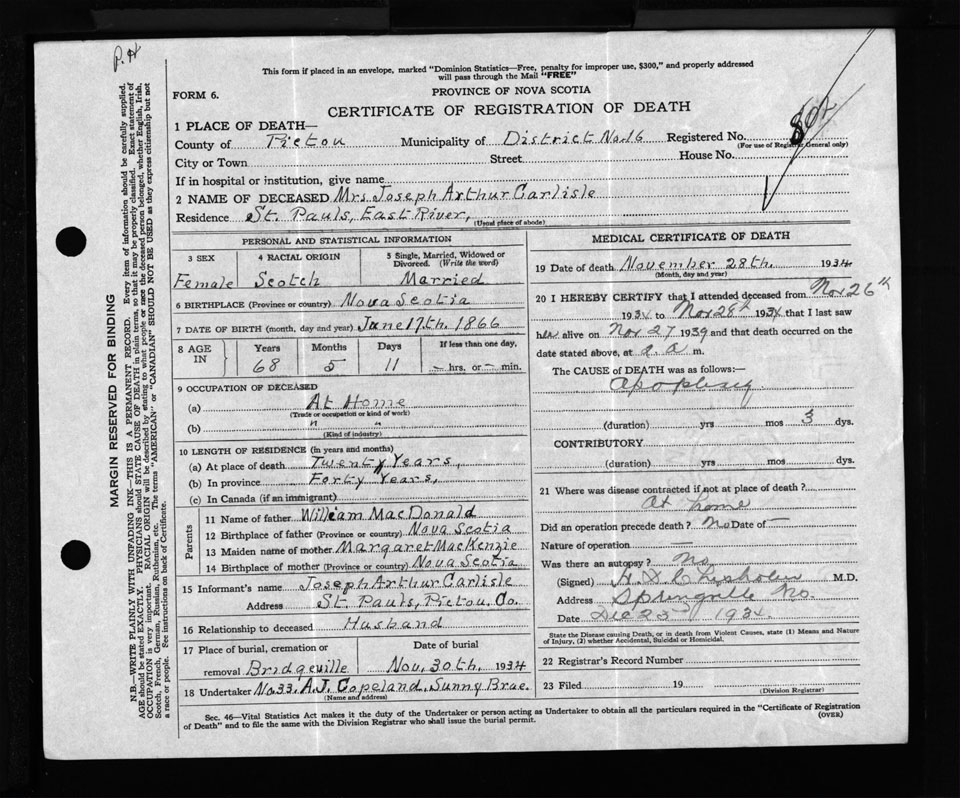 P.H
This form if placed in an envelope, marked "Dominion Statistics—Free, penalty for improper use, $300," and properly addressed
will pass through the Mail "FREE"
FORM 6.
PROVINCE OF NOVA SCOTIA
CERTIFICATE OF REGISTRATION OF DEATH
802
1 PLACE OF DEATH—
County of Pictou Municipality of District No. 16 Registered No.
(For use of Registrar General only)
City or Town Street House No.
If in hospital or institution, give name
2 NAME OF DECEASED Mrs Joseph Arthur Carlisle
Residence St. Pauls, East River,
(Usual place of abode)
PERSONAL AND STATISTICAL INFORMATION
3 SEX 4 RACIAL ORIGIN 5 Single, Married, Widowed or
Divorced. (Write the word)
Female Scotch Married
6 BIRTHPLACE (Province or country) Nova Scotia
7 DATE OF BIRTH (month, day and year) June 17th. 1866
8 AGE IN Years Months Days If less than one day,
68 5 11 — hrs. or — min.
9 OCCUPATION OF DECEASED
(a) At Home
(Trade or occupation or kind of work)
(b) " "
(Kind of industry)
10 LENGTH OF RESIDENCE (in years and months)
(a) At place of death Twenty Years,
(b) In province Forty Years,
(c) In Canada (if an immigrant)
Parents
11 Name of father William MacDonald
12 Birthplace of father (Province or country) Nova Scotia
13 Maiden name of mother Margaret MacKenzie
14 Birthplace of mother (Province or country) Nova Scotia
15 Informant's name Joseph Arthur Carlisle
Address St. Pauls, Pictou, Co.
16 Relationship to deceased Husband
17 Place of burial, cremation or Date of burial
removal Bridgeville Nov. 30th. 1934
18 Undertaker No. 33. A.J. Copeland. Sunny Brae.
(Name and address)
MEDICAL CERTIFICATE OF DEATH
19 Date of death November 28th. 1934
(Month, day and year)
20 I HEREBY CERTIFY that I attended deceased from Nov 26th
1934 to Nov 28th 1934 that I last saw
her alive on Nov 27 1934 and that death occurred on
date stated above, at a m.
The CAUSE of DEATH was as follows:—
apoplexy
(duration) yrs mos 3 dys.
CONTRIBUTORY
(duration) yrs mos dys.
21 Where was disease contracted if not at place of death?
At home
Did an operation precede death? No Date of —
Nature of operation —
Was there an autopsy? No
(Signed) Chisholm M.D.
Address Springville
Date Dec 23rd 1934
State the Disease causing Death, or in death from Violent Causes, state (1) Means and Nature
of Injury, (2) whether Accidental, Suicidal or Homicidal.
22 Registrar's Record Number
23 Filed 19
(Division Registrar)
Sec. 46—Vital Statistics Act makes it the duty of the Undertaker or person acting as Undertaker to obtain all the particulars required in the "Certificate of Registration
of Death" and to file the same with the Division Registrar who shall issue the burial permit. (OVER)
MARGIN RESERVED FOR BINDING
N.B.—WRITE PLAINLY WITH UNFADING INK—THIS IS A PERMANENT RECORD. Every item of information should be carefully supplied.
AGE should be stated EXACTLY. PHYSICIANS should STATE CAUSE OF DEATH in plain terms, so that it may be properly classified. Exact statement of
OCCUPATION is very important. RACIAL ORIGIN will be described by stating to what people or race the deceased person belonged, whether English, Irish,
Scotch, French, German, Russian, Ruthenian, etc. The terms "AMERICAN" or "CANADIAN" SHOULD NOT BE USED as they express citizenship but not
a race or people. See instructions on back of Certificate.